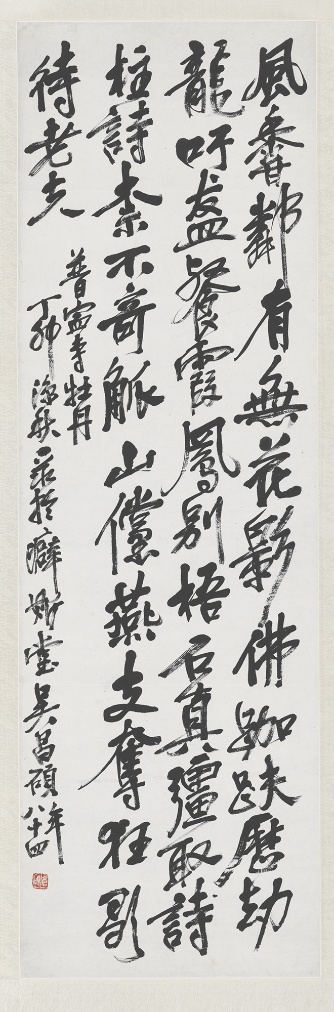 風香鄰有無花影佛跏趺歷劫
龍吁盋餐霞鳳別梧石真彊取詩
柱詩柰不奇觚山儻燕支奪狂歌
待老夫
普寧寺牡丹
丁卯涼秋录於癖斯堂吳昌碩年八十四